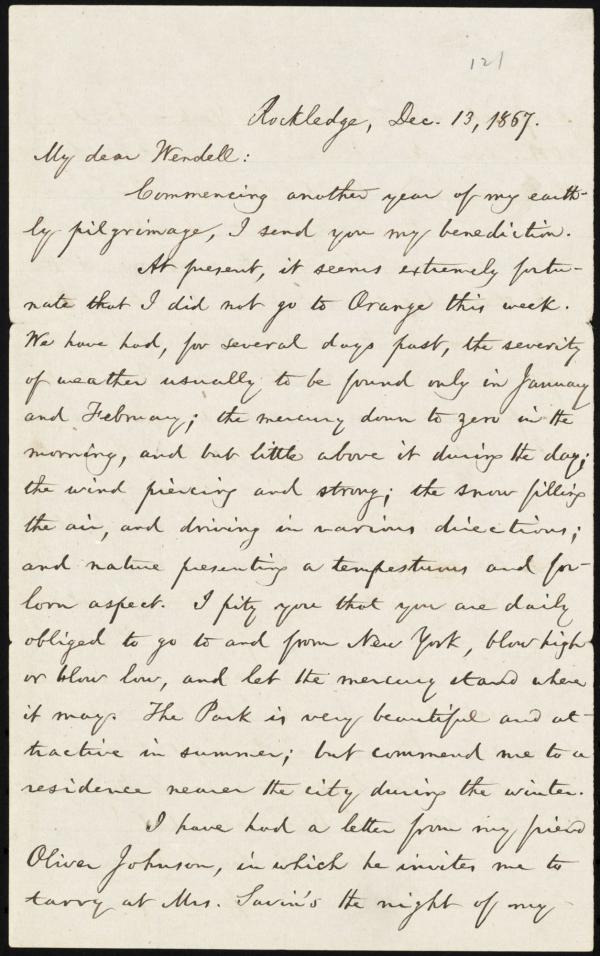 121
Rockledge, Dec. 13, 1867.
My dear Wendell:
Commencing another year of my earth-
ly pilgrimage, I send you my benediction.
At present, it seems extremely fortu-
nate that I did not go to Orange this week.
We have had, for several days past, the severity
of weather usually to be found only in January
and February; the mercury down to zero in the
morning, and but little above it during the day;
the wind piercing and strong; the snow filling
the air, and driving in various directions;
and nature presenting a tempestuous and for-
lorn aspect. I pity you that you are daily
obliged to go to and from New York, blow high
or blow low, and let the mercury stand where
it may. The Park is very beautiful and at-
tractive in summer; but commend me to a
residence nearer the city during the winter.
I have had a letter from my friend
Oliver Johnson, in which he invites me to
tarry at Mrs. Savin's the night of my